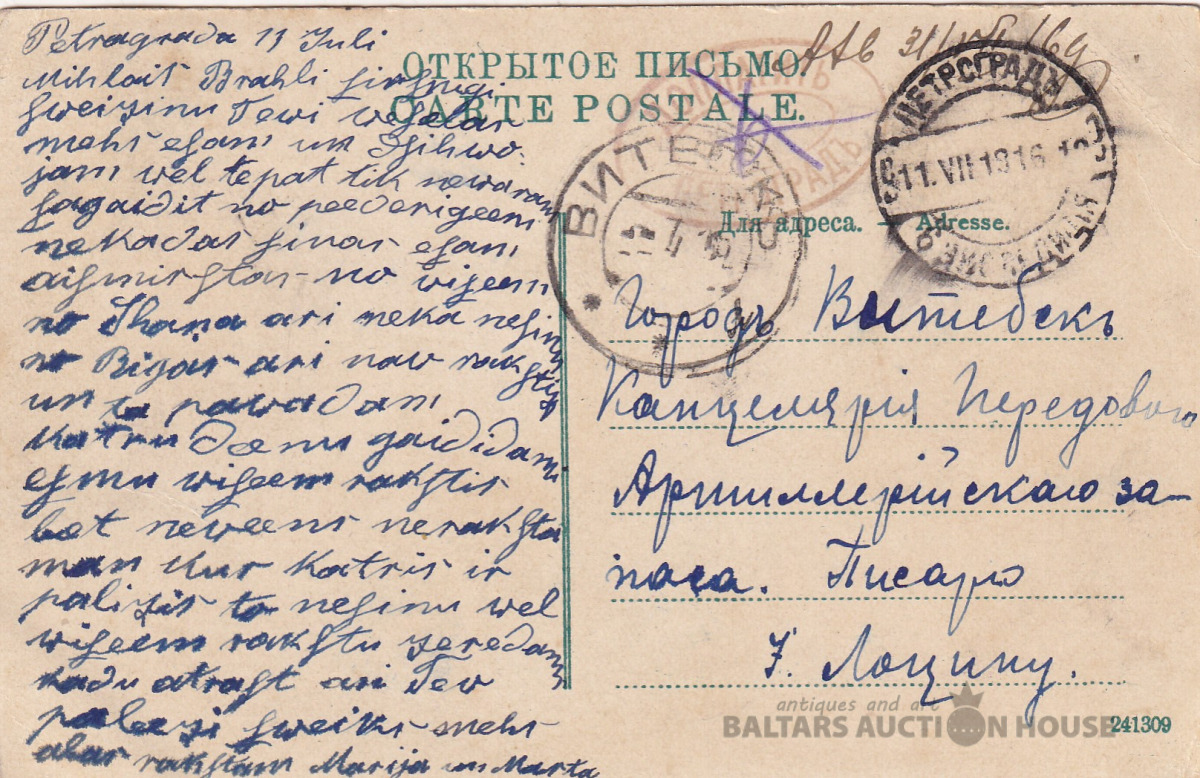 Petragrada 11 Juli
Mihļait Brahli sirsnigi
sweizinu Tewi weselas
mehs esam un Dsihwo-
jam wel tepat tik newaram
sagaidit no peederigeem
nekadas sinas esam
aismirstas no wiseem
no Jhana ari neka nesinu
no Rigas ari naw rakstijus
un ta pawadam
katru Deenu gaididami
esmu wiseem rakstis
bet neweens neraksta
man kur katris ir
palizis to nesinu wel
wiseem rakstu zeredams
kadu atrast ari Tew
paleezi sweiks mehs
abas rakstam Marija un Marta
ОТКРЫТОЕ ПИСЬМО.
CARTE POSTALE.
Atb 31/VII 16g
ПЕТРОГРАДЪ
11.VII.1916
ВИТЕБСКЪ
Для адреса. — Adresse.
Городъ Витебскъ
Канцелярія Передового
Артиллерійскаго за-
паса. Писарю
У. Лоцину.
antiques and art
BALTARS AUCTION HOUSE
241309